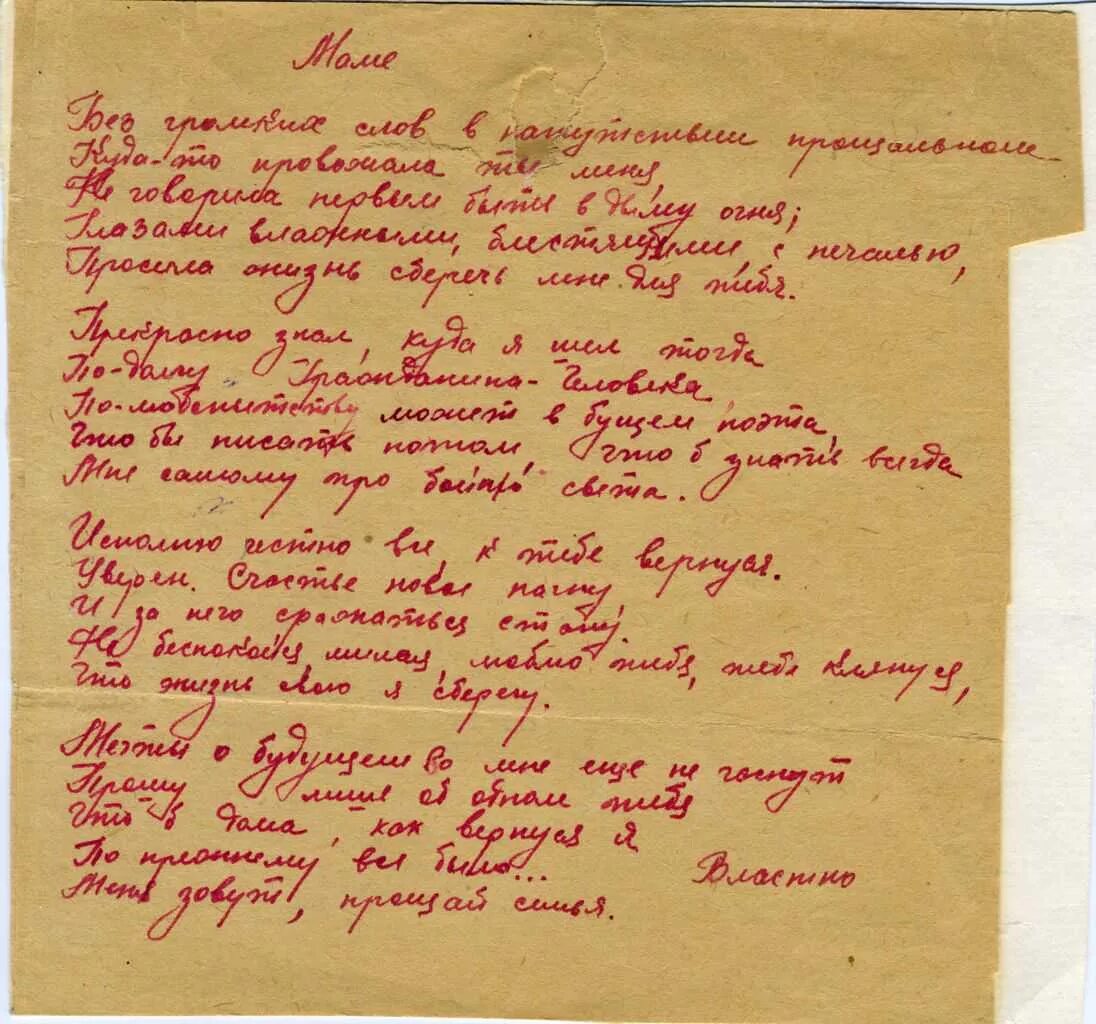 Маме
Без громких слов в напутствии прощальном
Куда-то провожала ты меня,
Не говорила первым быть в дыму огня;
Глазами влажными, блестящими, с печалью,
Просила жизнь сберечь мне для тебя.
Прекрасно знал, куда я шел тогда
По-долгу Гражданина-Человека
По-любопытству может в бущем поэта,
Что бы писать потом, что б знать всегда
Мне самому про боли света.
Исполню честно все, к тебе вернуся.
Уверен. Счастье новое начну,
И за него сражаться стану.
Не беспокойся, милая, люблю тебя, тебе клянуся,
Что жизнь свою я сберегу.
Мечты о будущем во мне еще не гаснут
Прошу лишь об одном тебя
Что-б дома, как вернуся я
По прежнему все было...
Властно
Меня зовут, прощай семья.